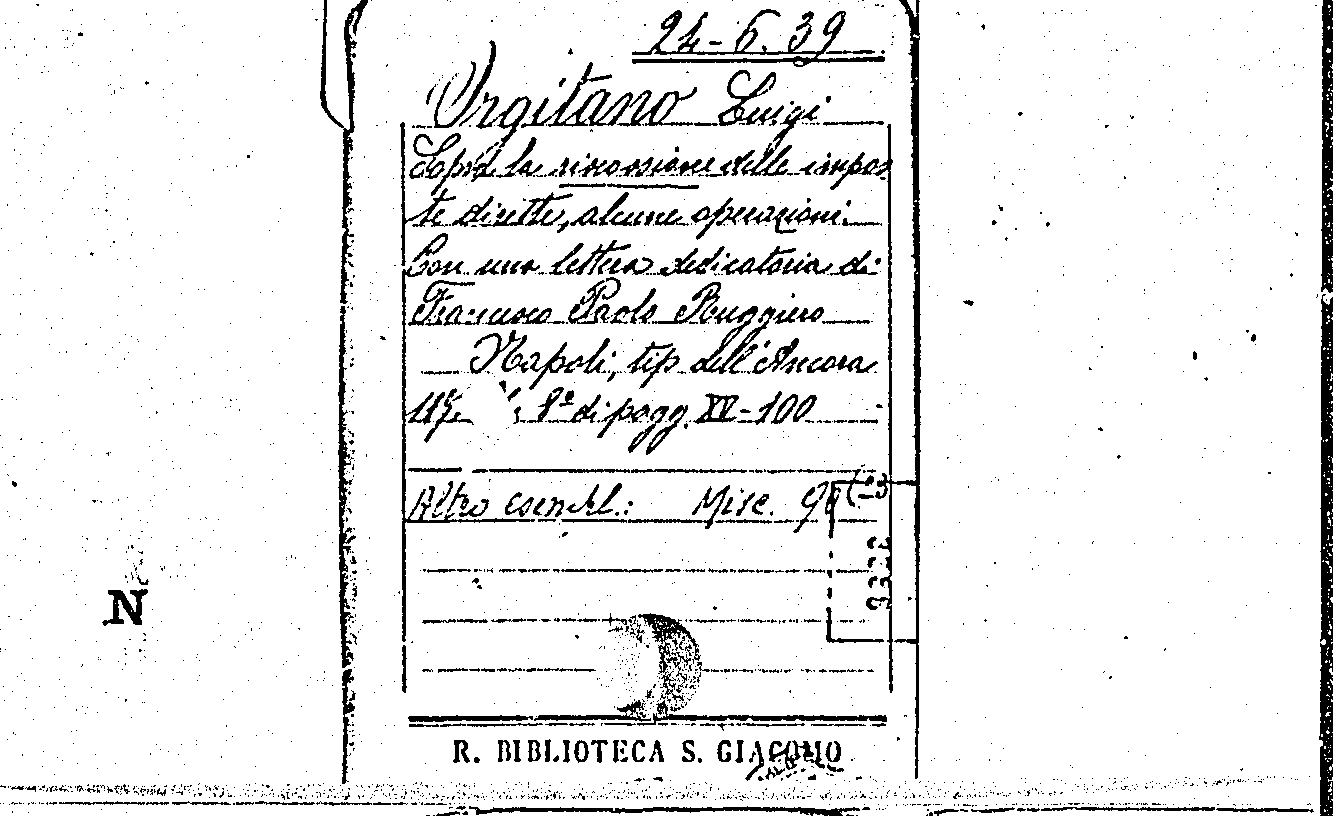 24-6.39
Urgitano Luigi
Sopra la riscossione delle impos
te dirette, alcune operazioni.
Con una lettera dedicatoria di
Francesco Paolo Ruggiero
Napoli, tip dell'Ancora
8º di pagg. XV-100
Altro esempl.: Misc.
N
R. BIBLIOTECA S. GIACOMO